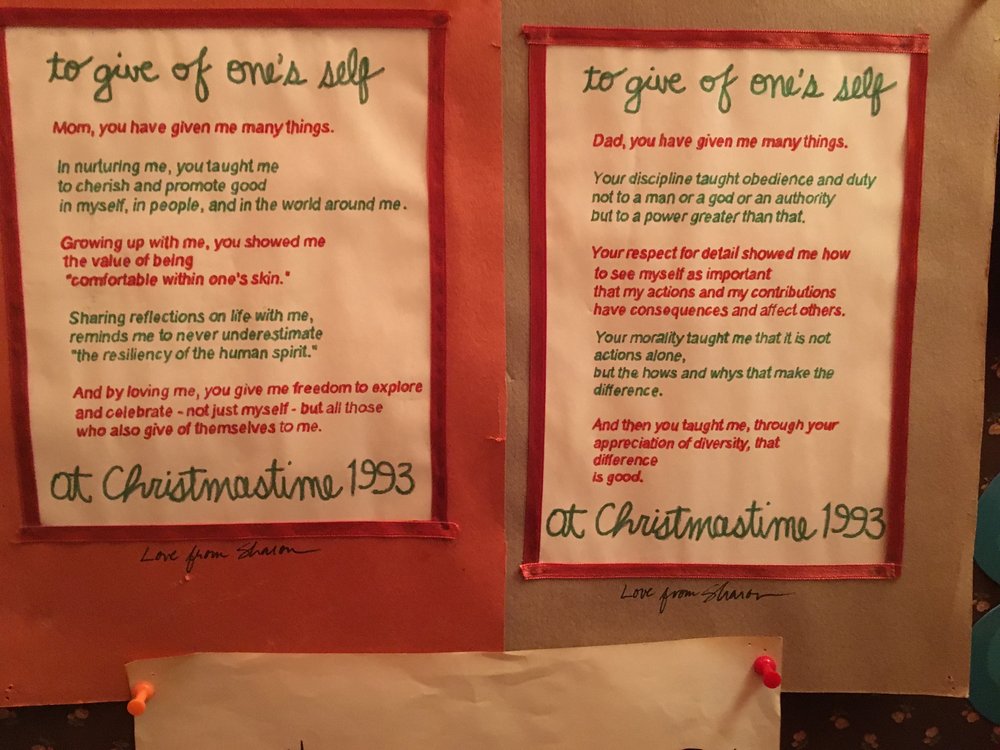 to give of one's self
Mom, you have given me many things.
In nurturing me, you taught me
to cherish and promote good
in myself, in people, and in the world around me.
Growing up with me, you showed me
the value of being
"comfortable within one's skin."
Sharing reflections on life with me,
reminds me to never underestimate
"the resiliency of the human spirit."
And by loving me, you give me freedom to explore
and celebrate - not just myself - but all those
who also give of themselves to me.
at Christmastime 1993
Love from Sharon
to give of one's self
Dad, you have given me many things.
Your discipline taught obedience and duty
not to a man or a god or an authority
but to a power greater than that.
Your respect for detail showed me how
to see myself as important
that my actions and my contributions
have consequences and affect others.
Your morality taught me that it is not
actions alone,
but the hows and whys that make the
difference.
And then you taught me, through your
appreciation of diversity, that
difference
is good.
at Christmastime 1993
Love from Sharon